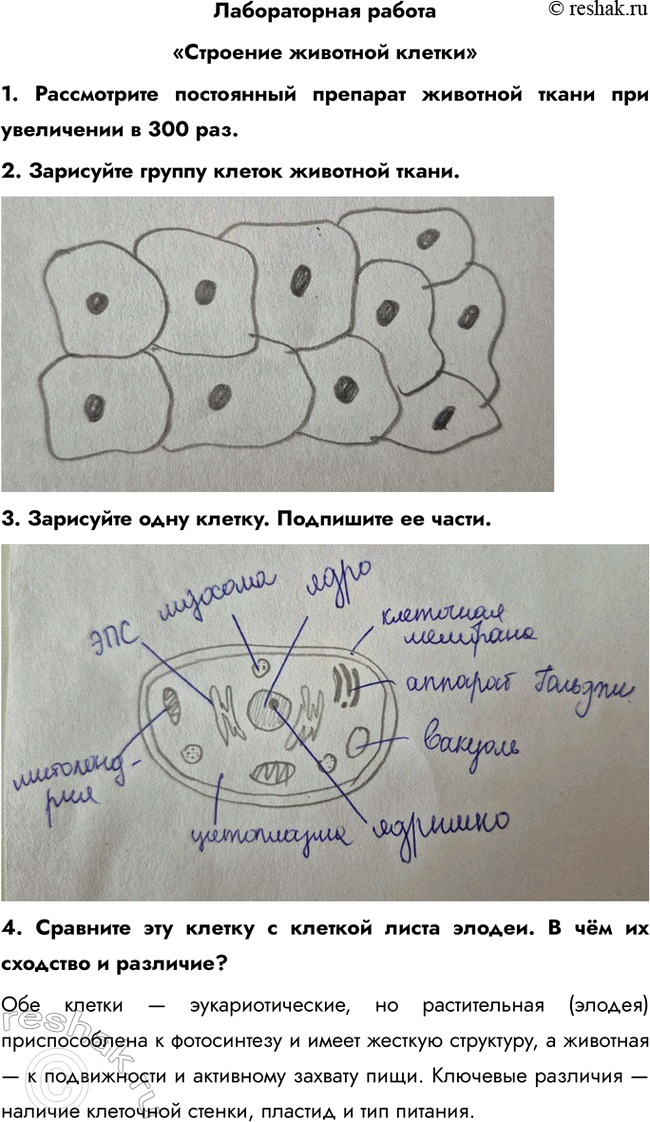 Лабораторная работа
© reshak.ru
«Строение животной клетки»
1. Рассмотрите постоянный препарат животной ткани при
увеличении в 300 раз.
2. Зарисуйте группу клеток животной ткани.
3. Зарисуйте одну клетку. Подпишите ее части.
ЭПС
лизосома
ядро
клеточная
мембрана
аппарат Гольджи
вакуоль
митохонд-
рия
цитоплазма
ядрышко
4. Сравните эту клетку с клеткой листа элодеи. В чём их
сходство и различие?
Обе клетки — эукариотические, но растительная (элодея)
приспособлена к фотосинтезу и имеет жесткую структуру, а животная
— к подвижности и активному захвату пищи. Ключевые различия —
наличие клеточной стенки, пластид и тип питания.
reshak.ru